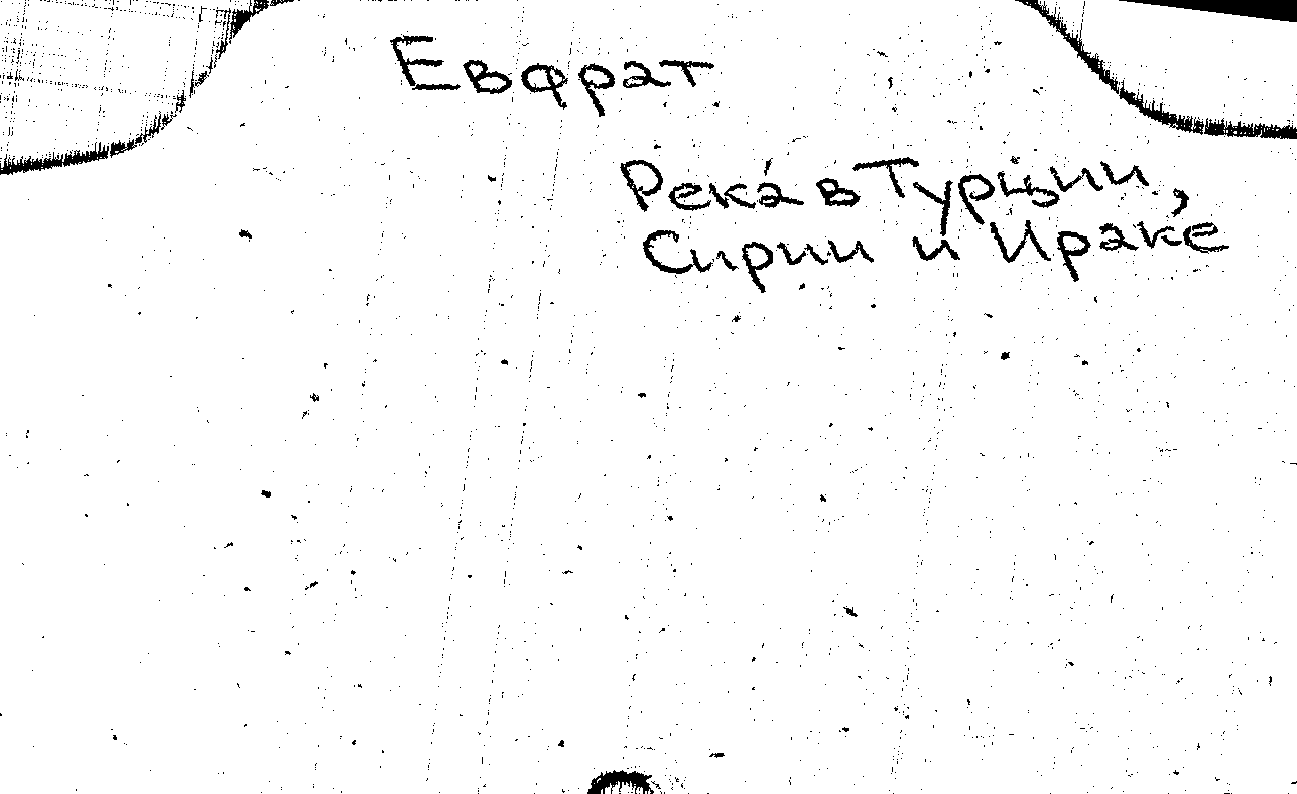 Евфрат
Река́ в Турции,
Сирии и Ираке